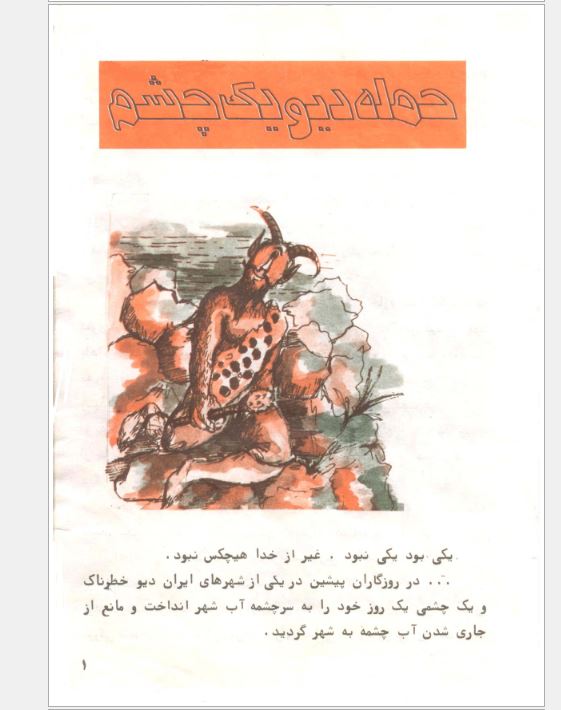 حمله دیو یک چشم
یکی بود یکی نبود . غیر از خدا هیچکس نبود .
... در روزگاران پیشین در یکی از شهرهای ایران دیو خطرناک
و یک چشمی یک روز خود را به سرچشمه آب شهر انداخت و مانع از
جاری شدن آب چشمه به شهر گردید .
۱